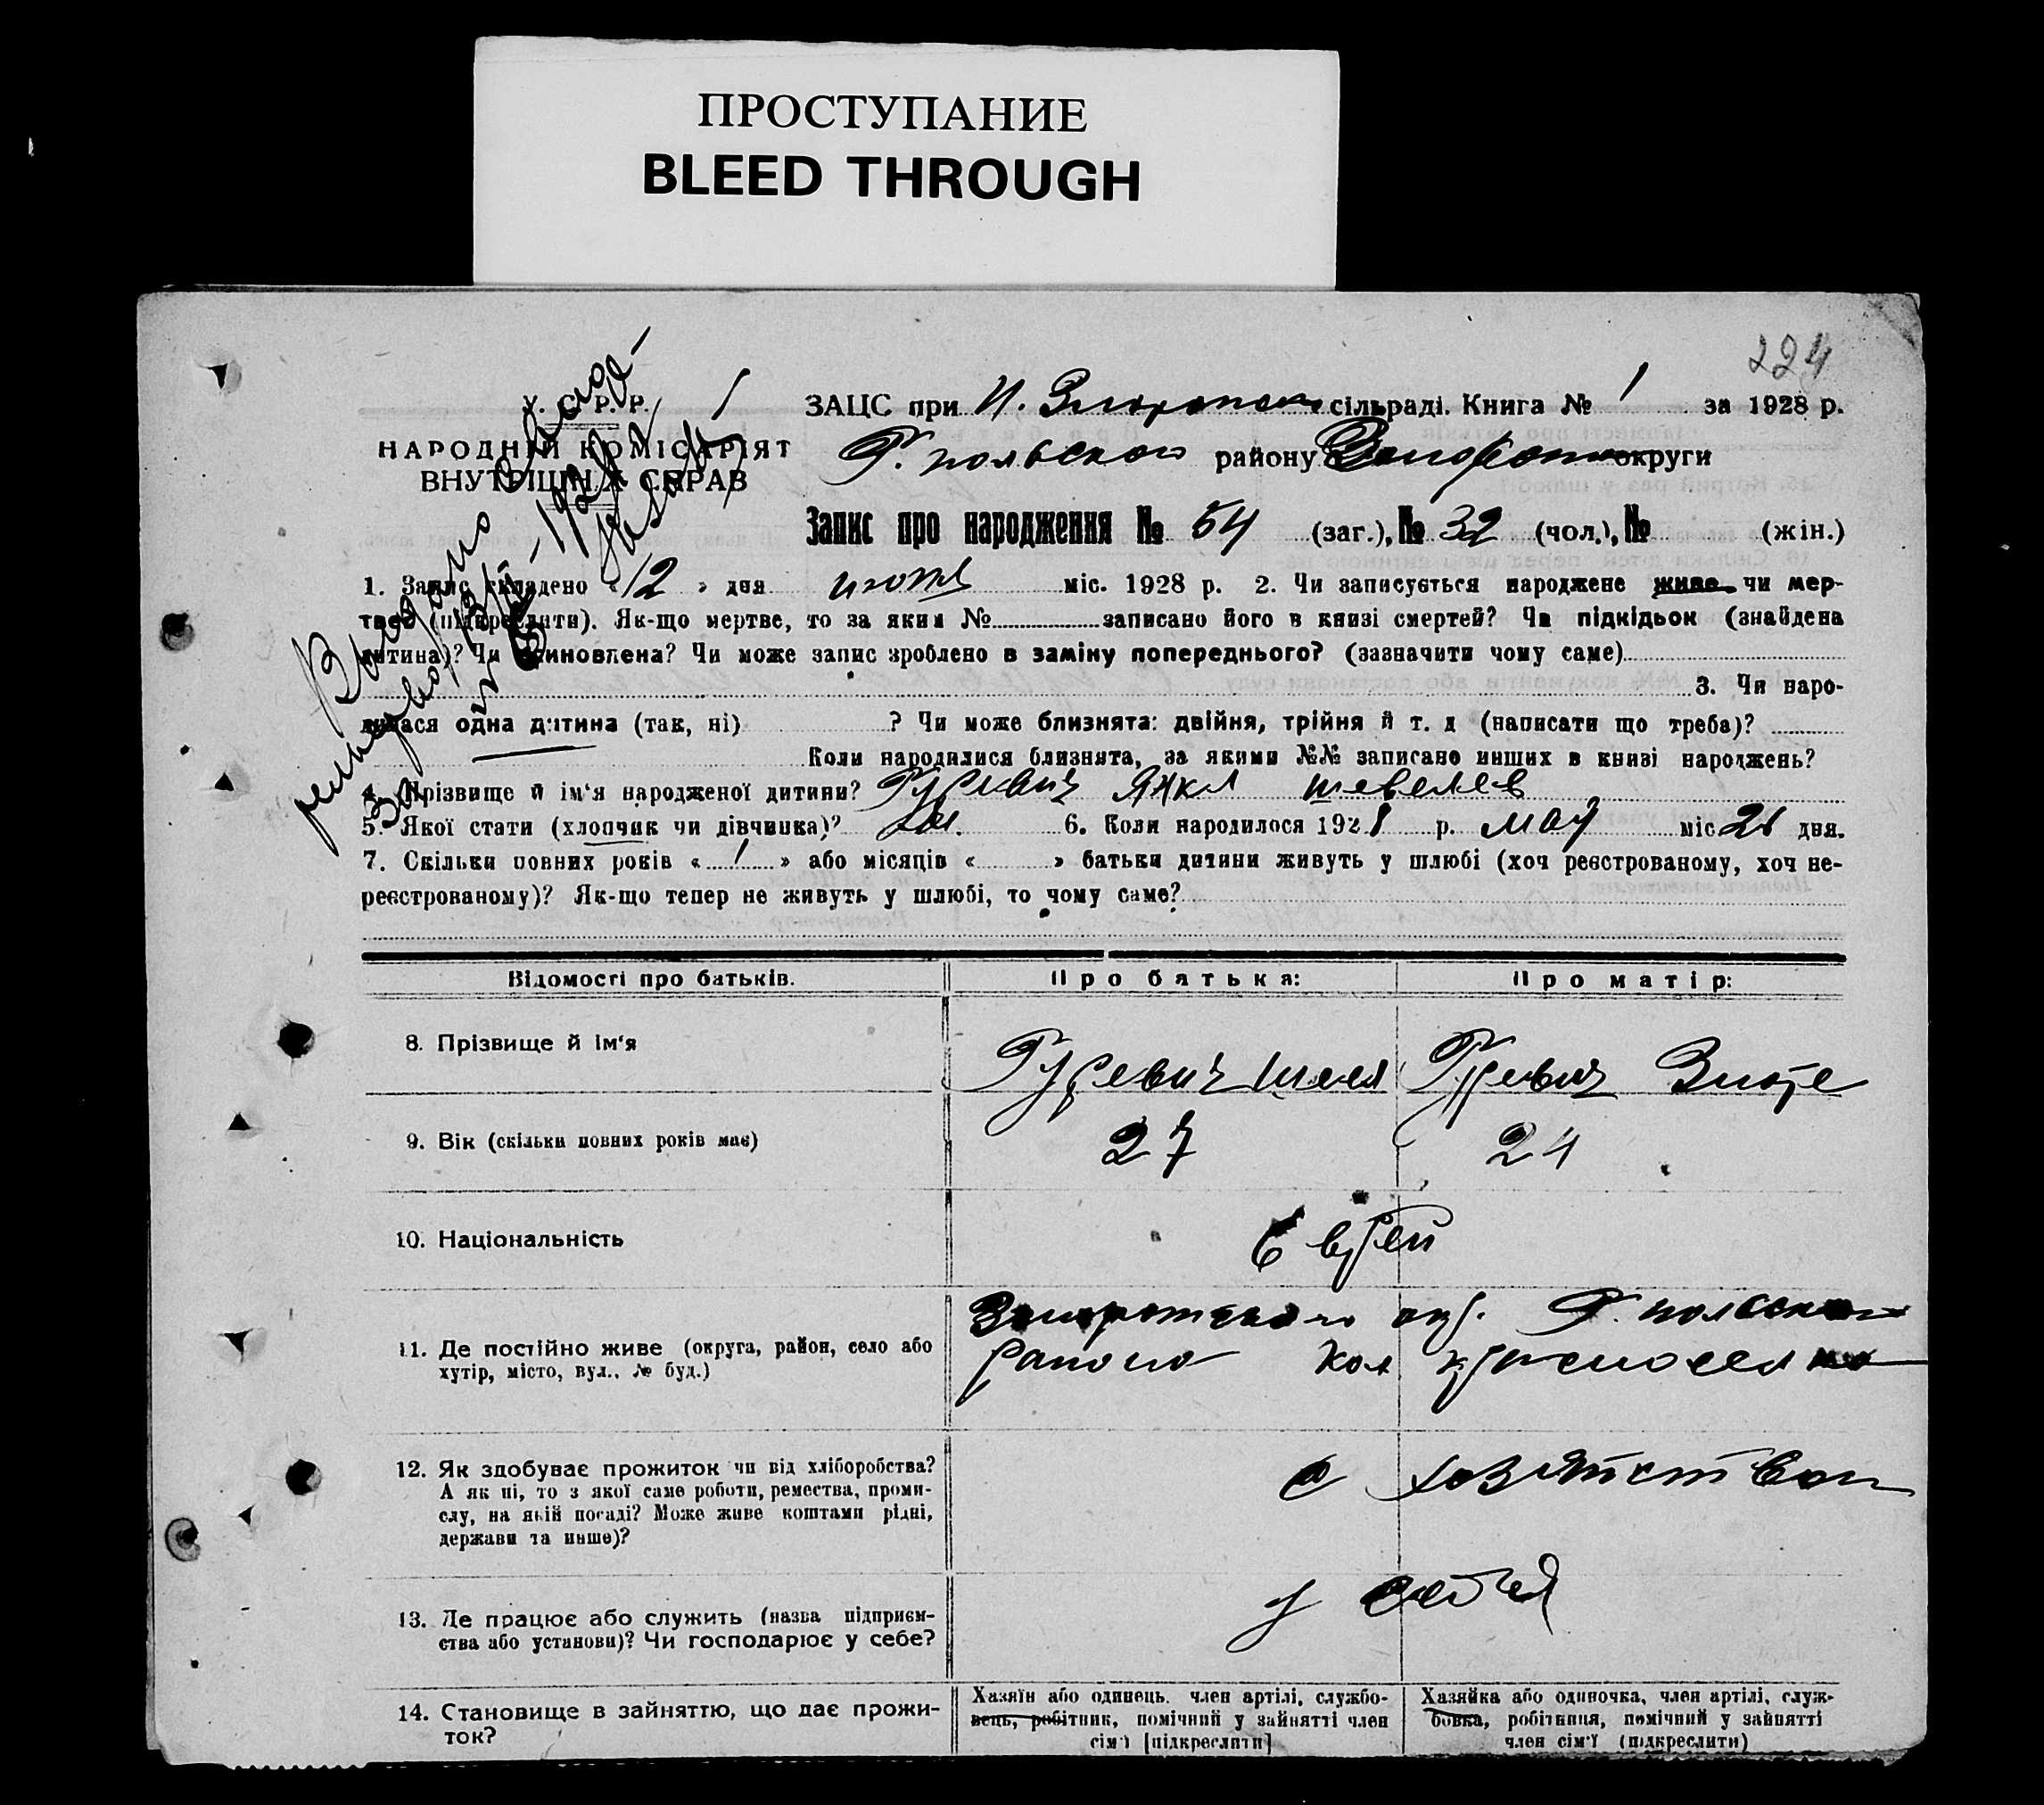 ПРОСТУПАНИЕ
BLEED THROUGH
224
У. С. Р. Р.
НАРОДНІЙ КОМІСАРІЯТ
ВНУТРІШНІХ СПРАВ
ЗАЦС при сільраді. Книга № 1 за 1928 р.
Г. польского району округи
Запис про народження № 54 (заг.), № 32 (чол.), № (жін.)
1. Запис складено « 12 » дня міс. 1928 р. 2. Чи записується народжене живе чи мер-
тве (підкреслити). Як-що мертве, то за яким № записано його в книзі смертей? Чи підкідьок (знайдена
дитина)? Чи Чи може запис зроблено в заміну попереднього? (зазначити чому саме)
3. Чи наро-
дилася одна дитина (так, ні) ? Чи може близнята: двійня, трійня й т. д (написати що треба)?
Коли народилися близнята, за якими №№ записано инших в книзі народжень?
4. Прізвище й ім‘я народженої дитини? Гуревич Янкл шевелев
5. Якої стати (хлопчик чи дівчинка)? 6. Коли народилося 1928 р. мая міс. дня.
7. Скільки повних років « 1 » або місяців « » батьки дитини живуть у шлюбі (хоч реєстрованому, хоч не-
реєстрованому)? Як-що тепер не живуть у шлюбі, то чому саме?
Відомості про батьків. Про батька: Про матір:
8. Прізвище й ім‘я Гуревич Гуревич
9. Вік (скільки повних років має) 27 24
10. Національність Еврей
11. Де постійно живе (округа, район, село або
хутір, місто, вул., № буд.)
Г. польского
района кол
12. Як здобуває прожиток чи від хліборобства?
А як ні, то з якої саме роботи, ремества, проми-
слу, на якій посаді? Може живе коштами рідні,
держави та инше)?
13. Де працює або служить (назва підприєм-
ства або установи)? Чи господарює у себе?
у себя
14. Становище в зайняттю, що дає прожи-
ток?
Хазяїн або одинець, член артілі, службо-
вець, робітник, помічний у зайнятті член
сім‘ї [підкреслити]
Хазяйка або одиночка, член артілі, служ-
бовка, робітниця, помічний у зайнятті
член сім‘ї (підкреслити)